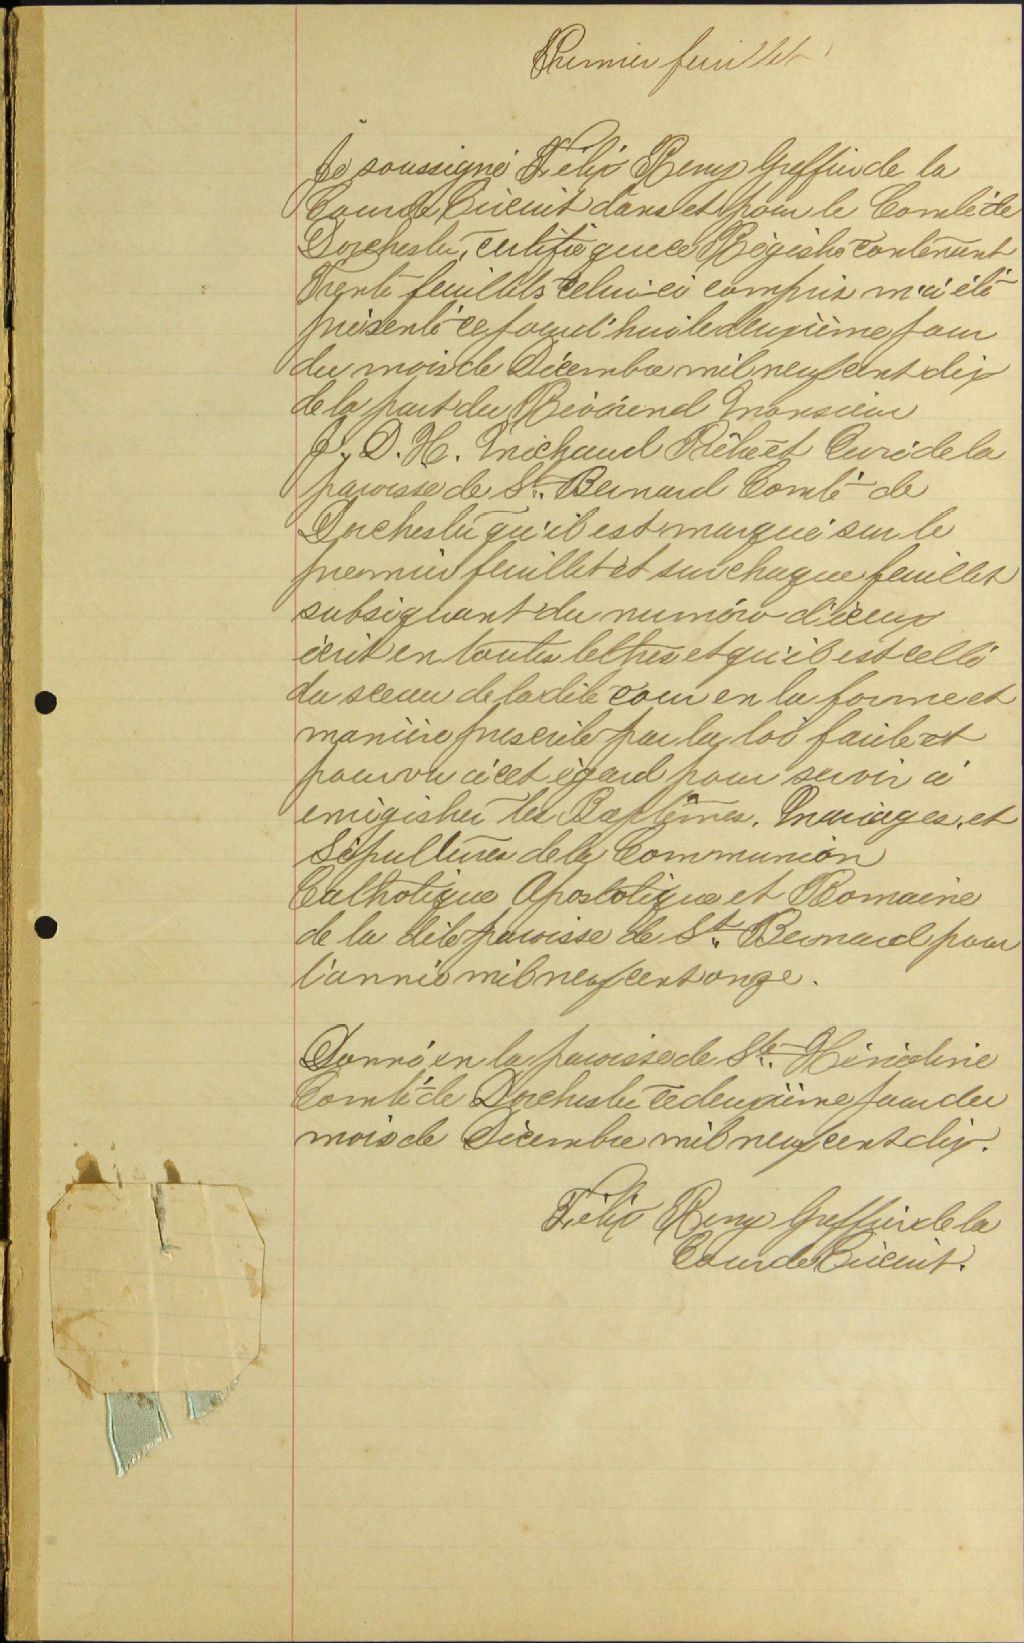 Premier feuillet
Je soussigné Félix Remy Greffier de la
Cour de Circuit dans et pour le Comté de
Dorchester, certifie que ce Régistre contenant
Trente feuillets celui-ci compris m'a été
présenté ce jourd'hui le deuxième jour
du mois de Décembre mil neuf cent dix
de la part du Révérend Monsieur
J. D. H. Michaud Prêtre et Curé de la
paroisse de St. Bernard Comté de
Dorchester qu'il est marqué sur le
premier feuillet et sur chaque feuillet
subséquant du numéro d'iceux
écrit en toutes lettres et qu'il est cellé
du sceau de la dite cour en la forme et
manière prescrite par la loi faite et
pourvu à cet égard pour servir à
enrégistrer les Baptêmes, Mariages, et
Sépultures de la Communion
Catholique Apostolique et Romaine
de la dite paroisse de St. Bernard pour
l'année mil neuf cent onze.
Donné en la paroisse de Ste. Hénédine
Comté de Dorchester ce deuxième jour du
mois de Décembre mil neuf cent dix.
Félix Remy Greffier de la
Cour de Circuit.